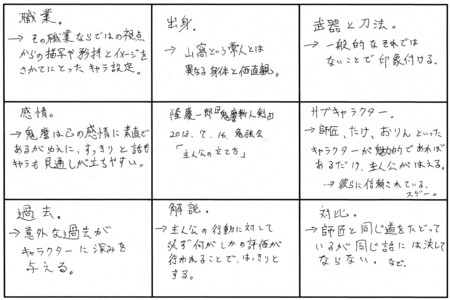 職業。
→ その職業ならではの視点
からの描写や矜持とイメージを
さかてにとったキャラ設定。
出身。
→ 山窩という常人とは
異なる身体と価値観。
武器と刀法。
→ 一般的なそれでは
ないことで印象付ける。
感情。
→ 鬼麿は己の感情に素直で
あるがゆえに、すっきりと話も
キャラも見通しが立ちやすい。
隆慶一郎『鬼麿斬人剣』
2013.7.16. 勉強会.
「主人公の立て方」
サブキャラクター.
→ 師匠、たけ、おりんといった
キャラクターが魅力的であれば
あるだけ、主人公がはえる。
→ 彼らに信頼されている、
スゲー。
過去。
→ 意外な過去が
キャラクターに深みを
与える。
解説。
→ 主人公の行動に対して
必ず何がしかの評価が
行われることで、はっきりと
する。
対比。
→ 師匠と同じ道をたどって
いるが同じ話には決して
ならない。 など。